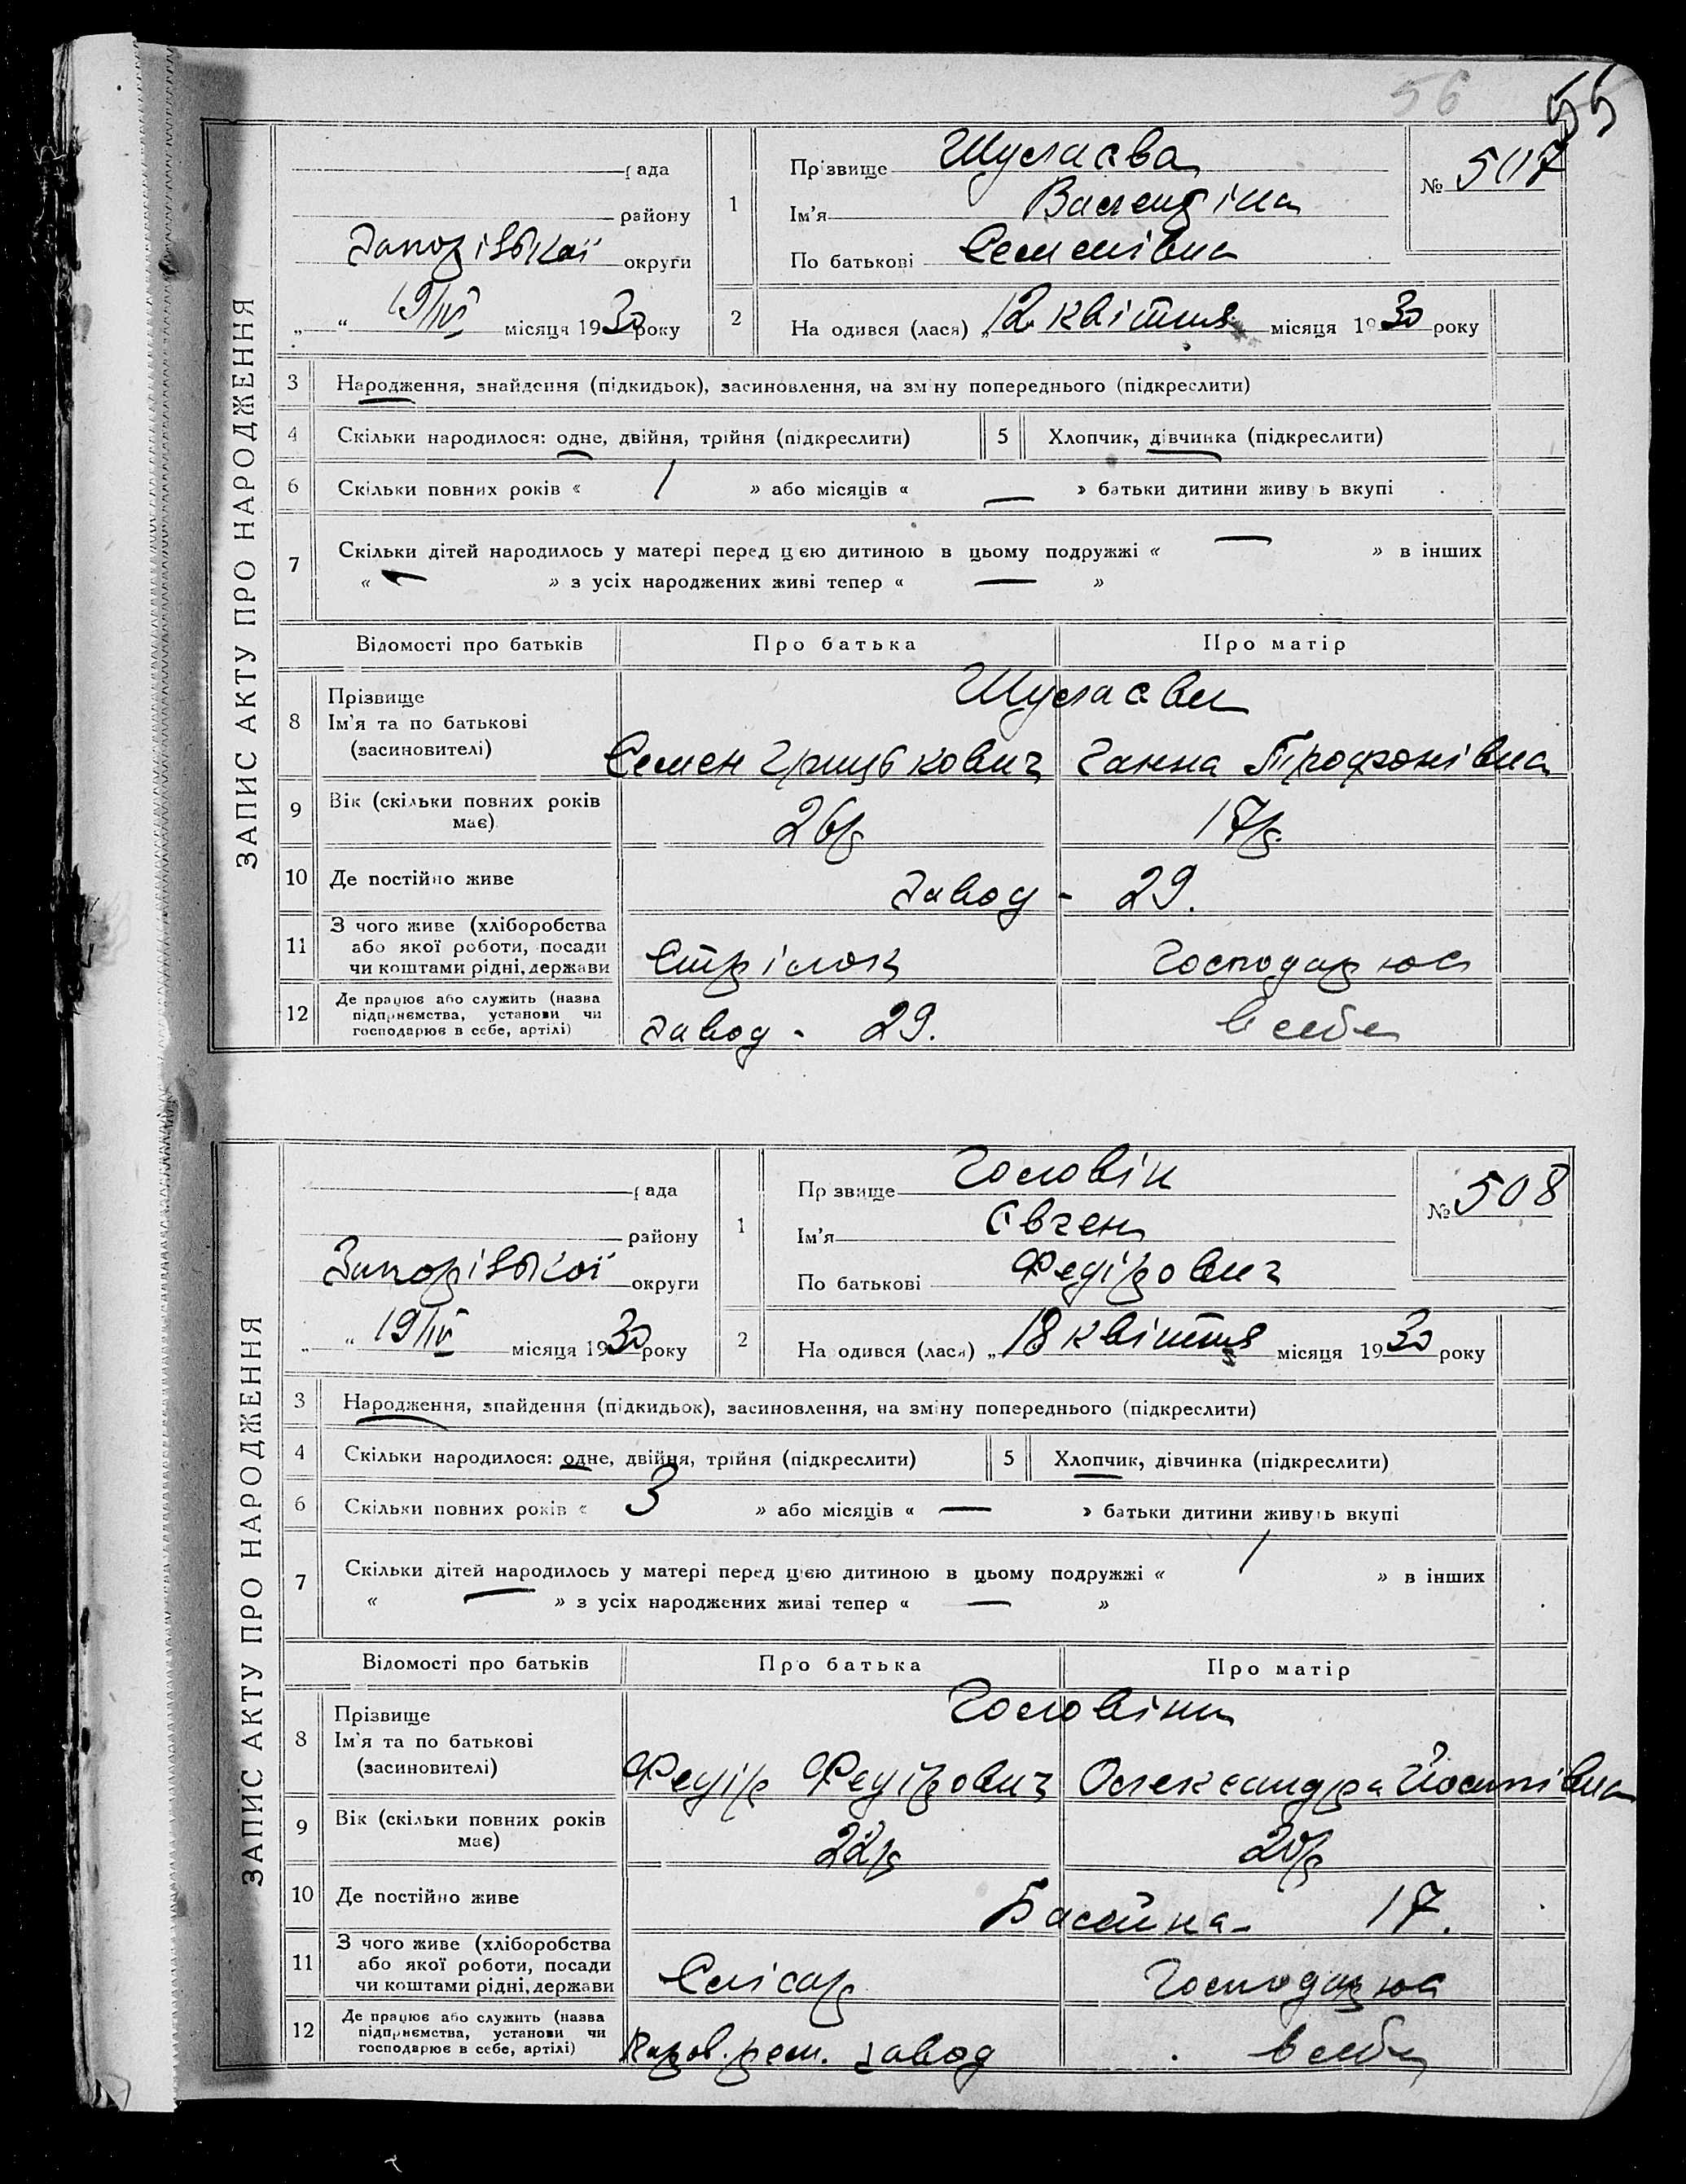 56 55
ЗАПИС АКТУ ПРО НАРОДЖЕННЯ
рада
району
Запорізької округи
„ “ 19/IV місяця 1930 року
1 Прізвище Шулаєва
Ім'я Валентіна
По батькові Семенівна
№ 507
2 Народився (лася) „12 квітня місяця 1930 року
3 Народження, знайдення (підкидьок), засиновлення, на зміну попереднього (підкреслити)
4 Скільки народилося: одне, двійня, трійня (підкреслити) 5 Хлопчик, дівчинка (підкреслити)
6 Скільки повних років « 1 » або місяців « — » батьки дитини живуть вкупі
7 Скільки дітей народилось у матері перед цією дитиною в цьому подружжі « — » в інших
« — » з усіх народжених живі тепер « — »
Відомості про батьків Про батька Про матір
8 Прізвище Шулаєви
Ім'я та по батькові
(засиновителі) Семен Грицькович Ганна Трофонівна
9 Вік (скільки повних років
має) 26р 17р
10 Де постійно живе завод - 29.
11 З чого живе (хліборобства
або якої роботи, посади
чи коштами рідні, держави Стрілок Господарює
12 Де працює або служить (назва
підприємства, установи чи
господарює в себе, артілі) завод - 29. в себе
ЗАПИС АКТУ ПРО НАРОДЖЕННЯ
рада
району
Запорізької округи
„ “ 19/IV місяця 1930 року
1 Прізвище Головін
Ім'я Євген
По батькові Федірович
№ 508
2 Народився (лася) „18 квітня місяця 1930 року
3 Народження, знайдення (підкидьок), засиновлення, на зміну попереднього (підкреслити)
4 Скільки народилося: одне, двійня, трійня (підкреслити) 5 Хлопчик, дівчинка (підкреслити)
6 Скільки повних років « 3 » або місяців « — » батьки дитини живуть вкупі
7 Скільки дітей народилось у матері перед цією дитиною в цьому подружжі « 1 » в інших
« — » з усіх народжених живі тепер « — »
Відомості про батьків Про батька Про матір
8 Прізвище Головіни
Ім'я та по батькові
(засиновителі) Федір Федірович Олександра Йосипівна
9 Вік (скільки повних років
має) 22р 20р
10 Де постійно живе Басейна - 17.
11 З чого живе (хліборобства
або якої роботи, посади
чи коштами рідні, держави Слісар Господарює
12 Де працює або служить (назва
підприємства, установи чи
господарює в себе, артілі) Паров. рем. завод в себе